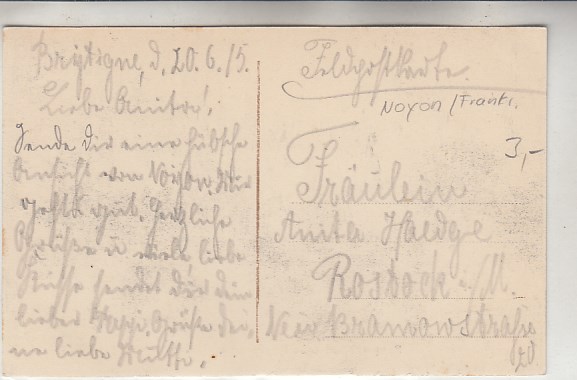 Brétigne, d. 20.6.15.
Liebe Anita!
Sende Dir eine hübsche
Ansicht von Noyon. Mir
geht's gut. Herzliche
Grüße u. viele liebe
Küsse sendet Dir dein
lieber Grüße dei-
ne liebe Mutti.
Feldpostkarte.
Noyon / Frankr.
3,-
Fräulein
Anita Haedge
Rostock i./M.
Neue Bramowstraße